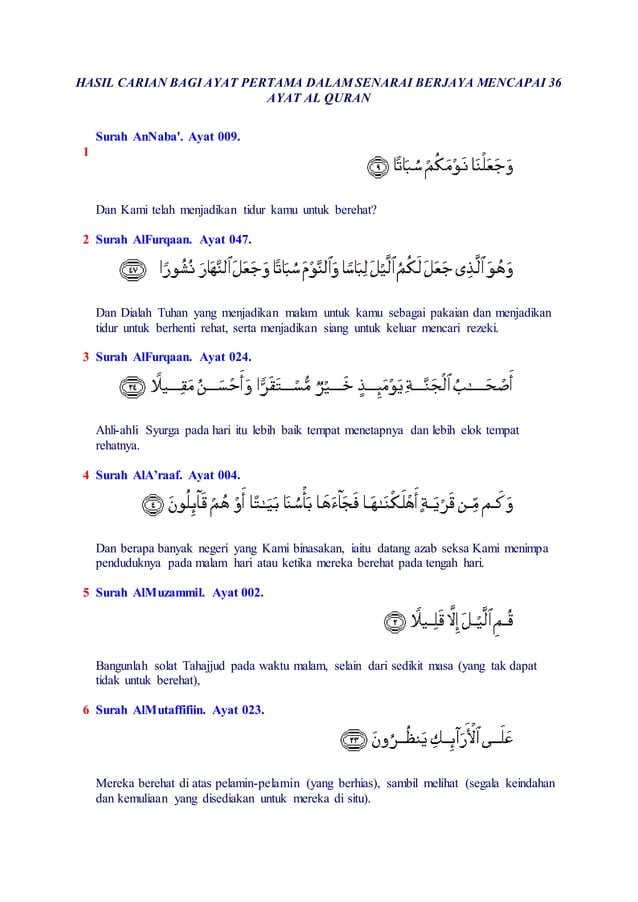 HASIL CARIAN BAGI AYAT PERTAMA DALAM SENARAI BERJAYA MENCAPAI 36
AYAT AL QURAN
Surah AnNaba'. Ayat 009.
1
وَجَعَلْنَا نَوْمَكُمْ سُبَاتًا ﴿٩﴾
Dan Kami telah menjadikan tidur kamu untuk berehat?
2 Surah AlFurqaan. Ayat 047.
وَهُوَ ٱلَّذِى جَعَلَ لَكُمُ ٱلَّيْلَ لِبَاسًا وَٱلنَّوْمَ سُبَاتًا وَجَعَلَ ٱلنَّهَارَ نُشُورًا ﴿٤٧﴾
Dan Dialah Tuhan yang menjadikan malam untuk kamu sebagai pakaian dan menjadikan
tidur untuk berhenti rehat, serta menjadikan siang untuk keluar mencari rezeki.
3 Surah AlFurqaan. Ayat 024.
أَصْحَـٰبُ ٱلْجَنَّةِ يَوْمَئِذٍ خَيْرٌ مُّسْتَقَرًّا وَأَحْسَنُ مَقِيلًا ﴿٢٤﴾
Ahli-ahli Syurga pada hari itu lebih baik tempat menetapnya dan lebih elok tempat
rehatnya.
4 Surah AlA’raaf. Ayat 004.
وَكَم مِّن قَرْيَةٍ أَهْلَكْنَـٰهَا فَجَآءَهَا بَأْسُنَا بَيَـٰتًا أَوْ هُمْ قَآئِلُونَ ﴿٤﴾
Dan berapa banyak negeri yang Kami binasakan, iaitu datang azab seksa Kami menimpa
penduduknya pada malam hari atau ketika mereka berehat pada tengah hari.
5 Surah AlMuzammil. Ayat 002.
قُمِ ٱلَّيْلَ إِلَّا قَلِيلًا ﴿٢﴾
Bangunlah solat Tahajjud pada waktu malam, selain dari sedikit masa (yang tak dapat
tidak untuk berehat),
6 Surah AlMutaffifiin. Ayat 023.
عَلَى ٱلْأَرَآئِكِ يَنظُرُونَ ﴿٢٣﴾
Mereka berehat di atas pelamin-pelamin (yang berhias), sambil melihat (segala keindahan
dan kemuliaan yang disediakan untuk mereka di situ).